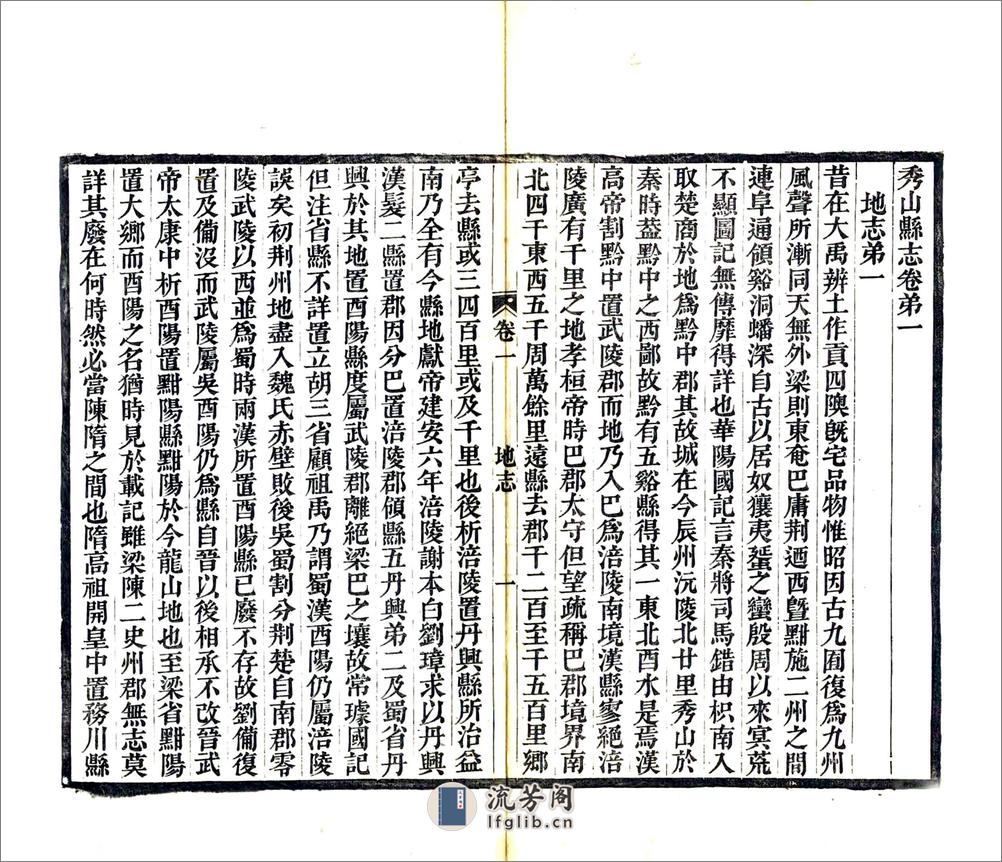 秀山縣志卷弟一
地志弟一
昔在大禹辨土作貢四隩旣宅品物惟昭因古九囿復爲九州
風聲所漸同天無外梁則東奄巴庸荆迺西曁黔施二州之間
連阜通領谿洞蟠深自古以居奴獽夷蜑之蠻殷周以來㝠荒
不顯圖記無傳靡得詳也華陽國記言秦將司馬錯由枳南入
取楚商於地爲黔中郡其故城在今辰州沅陵北廿里秀山於
秦時葢黔中之西鄙故黔有五谿縣得其一東北酉水是焉漢
高帝割黔中置武陵郡而地乃入巴爲涪陵南境漢縣寥絕涪
陵廣有千里之地孝桓帝時巴郡太守但望疏稱巴郡境界南
北四千東西五千周萬餘里遠縣去郡千二百至千五百里鄉
卷一
地志
一
亭去縣或三四百里或及千里也後析涪陵置丹興縣所治益
南乃全有今縣地獻帝建安六年涪陵謝本白劉璋求以丹興
漢髮二縣置郡因分巴置涪陵郡領縣五丹興弟二及蜀省丹
興於其地置酉陽縣度屬武陵郡離絕梁巴之壤故常璩國記
但注省縣不詳置立胡三省顧祖禹乃謂蜀漢酉陽仍屬涪陵
誤矣初荆州地盡入魏氏赤壁敗後吳蜀割分荆楚自南郡零
陵武陵以西並爲蜀時兩漢所置酉陽縣已廢不存故劉備復
置及備沒而武陵屬吳酉陽仍爲縣自晉以後相承不改晉武
帝太康中析酉陽置黚陽縣黚陽於今龍山地也至梁省黚陽
置大鄉而酉陽之名猶時見於載記雖梁陳二史州郡無志莫
詳其廢在何時然必當陳隋之間也隋高祖開皇中置務川縣
流芳阁
lfglib.cn